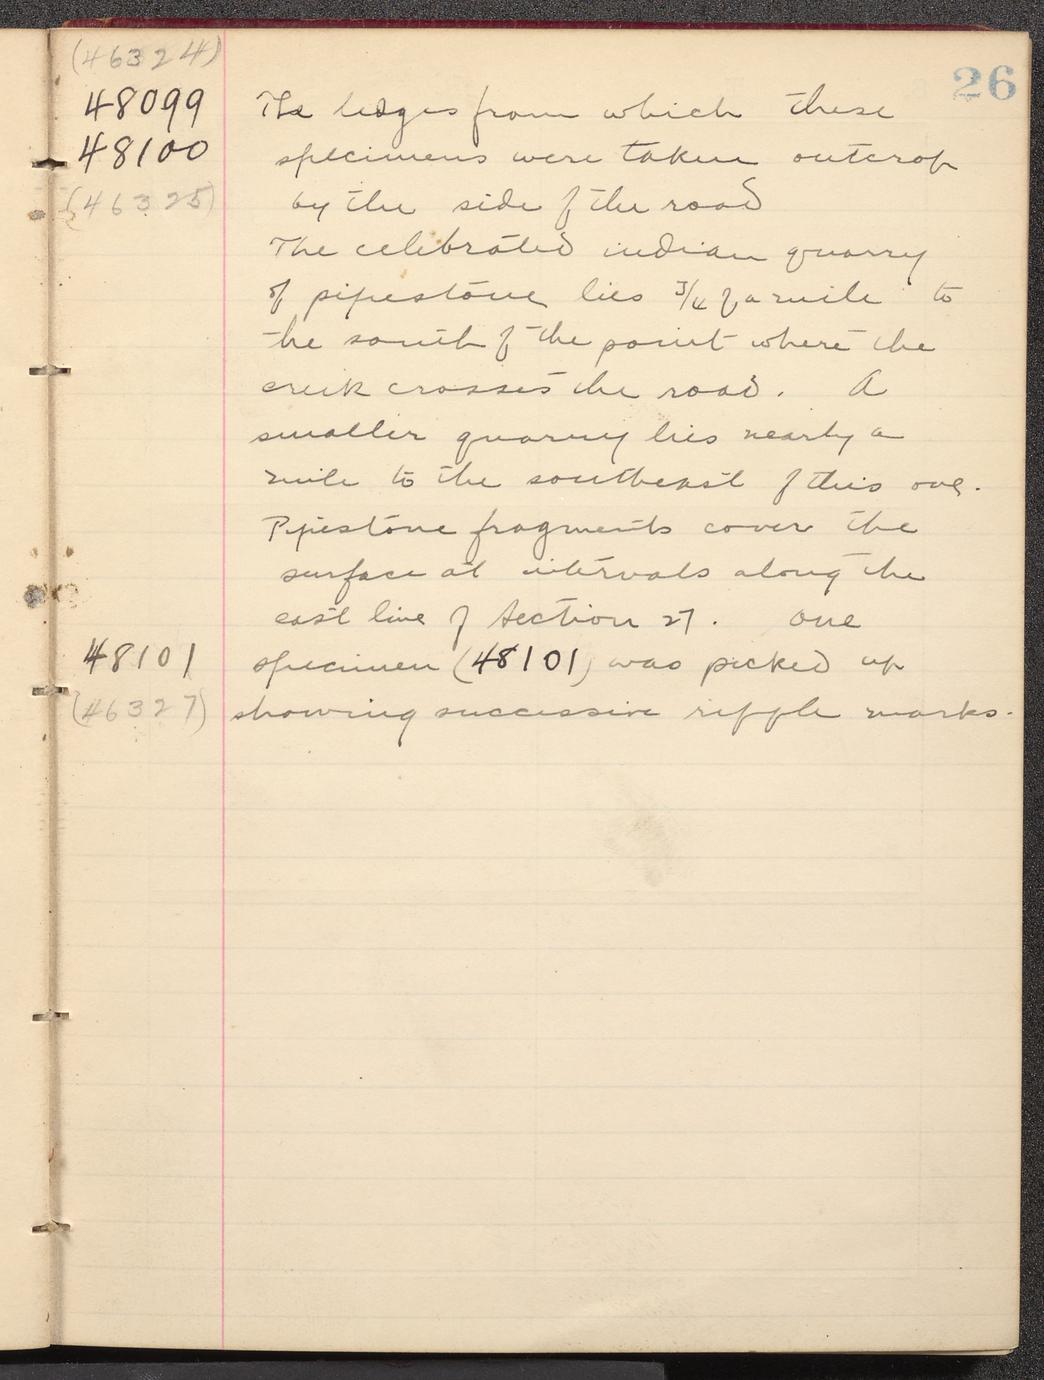 26
(46324)
48099 The ledges from which these
48100 specimens were taken outcrop
(46325) by the side of the road
The celebrated indian quarry
of pipestone lies 3/4 of a mile to
the south of the point where the
creek crosses the road. A
smaller quarry lies nearly a
mile to the southeast of this one.
Pipestone fragments cover the
surface at intervals along the
east line of Section 27. One
48101 specimen (48101) was picked up
(46327) showing successive ripple marks.